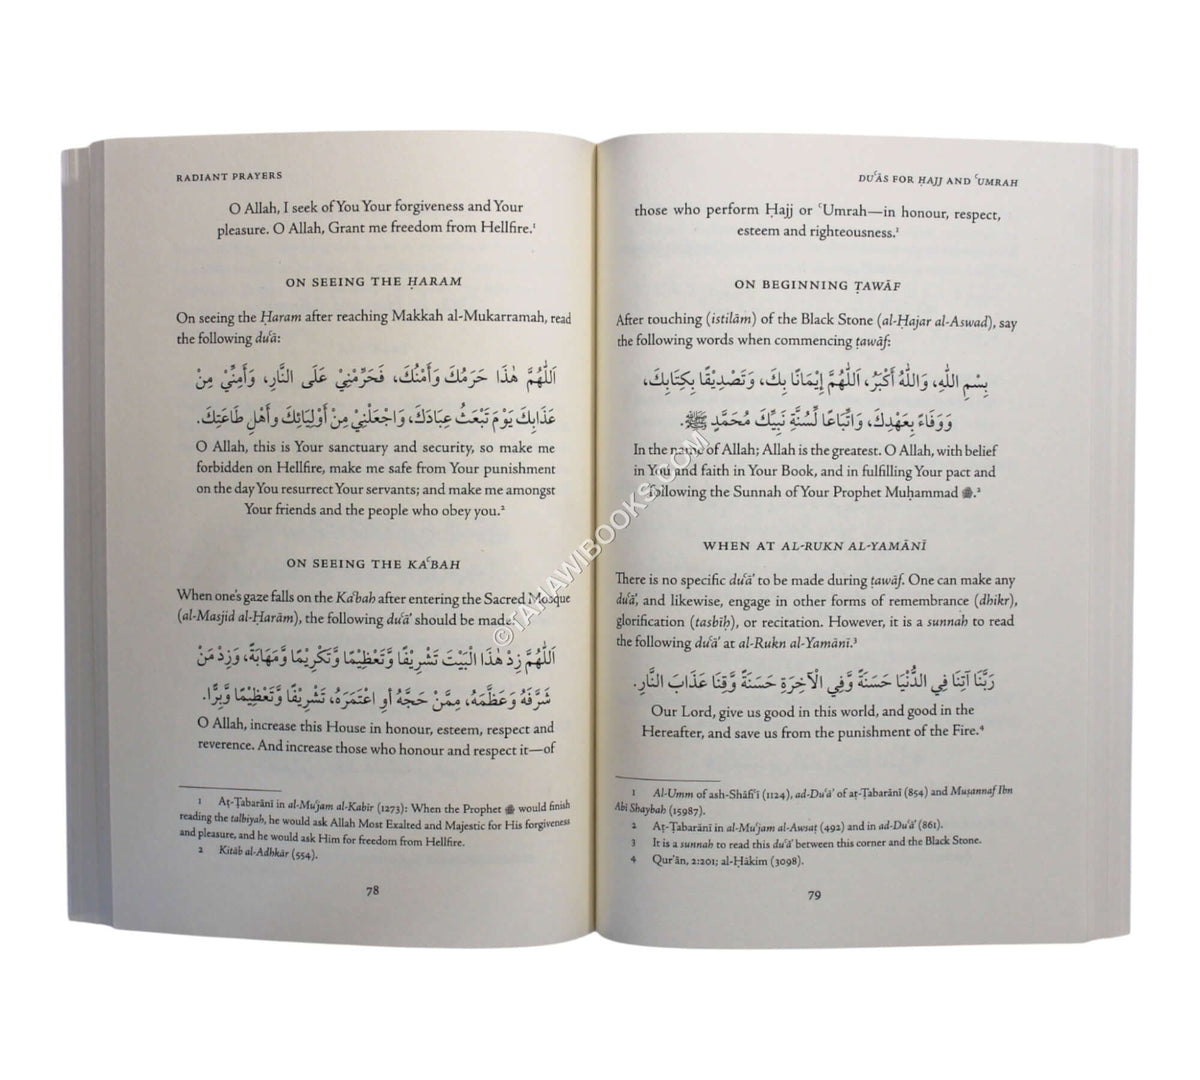 RADIANT PRAYERS
O Allah, I seek of You Your forgiveness and Your
pleasure. O Allah, Grant me freedom from Hellfire.¹
ON SEEING THE ḤARAM
On seeing the Ḥaram after reaching Makkah al-Mukarramah, read
the following duʿā:
اَللّٰهُمَّ هٰذَا حَرَمُكَ وَأَمْنُكَ، فَحَرِّمْنِيْ عَلَى النَّارِ، وَأَمِنِّيْ مِنْ
عَذَابِكَ يَوْمَ تَبْعَثُ عِبَادَكَ، وَاجْعَلْنِيْ مِنْ أَوْلِيَائِكَ وَأَهْلِ طَاعَتِكَ.
O Allah, this is Your sanctuary and security, so make me
forbidden on Hellfire, make me safe from Your punishment
on the day You resurrect Your servants; and make me amongst
Your friends and the people who obey you.²
ON SEEING THE KAʿBAH
When one's gaze falls on the Kaʿbah after entering the Sacred Mosque
(al-Masjid al-Ḥarām), the following duʿāʾ should be made:
اَللّٰهُمَّ زِدْ هٰذَا الْبَيْتَ تَشْرِيْفًا وَّتَعْظِيْمًا وَّتَكْرِيْمًا وَّمَهَابَةً، وَزِدْ مَنْ
شَرَّفَهُ وَعَظَّمَهُ، مِمَّنْ حَجَّهُ أَوِ اعْتَمَرَهُ، تَشْرِيْفًا وَّتَعْظِيْمًا وَّبِرًّا.
O Allah, increase this House in honour, esteem, respect and
reverence. And increase those who honour and respect it—of
1 Aṭ-Ṭabarānī in al-Muʿjam al-Kabīr (1273): When the Prophet ﷺ would finish
reading the talbiyah, he would ask Allah Most Exalted and Majestic for His forgiveness
and pleasure, and he would ask Him for freedom from Hellfire.
2 Kitāb al-Adhkār (554).
78
DUʿĀS FOR ḤAJJ AND ʿUMRAH
those who perform Ḥajj or ʿUmrah—in honour, respect,
esteem and righteousness.¹
ON BEGINNING ṬAWĀF
After touching (istilām) of the Black Stone (al-Ḥajar al-Aswad), say
the following words when commencing ṭawāf:
بِسْمِ اللهِ، وَاللهُ أَكْبَرُ، اَللّٰهُمَّ إِيْمَانًا بِكَ، وَتَصْدِيْقًا بِكِتَابِكَ،
وَوَفَاءً بِعَهْدِكَ، وَاتِّبَاعًا لِّسُنَّةِ نَبِيِّكَ مُحَمَّدٍ ﷺ.
In the name of Allah; Allah is the greatest. O Allah, with belief
in You and faith in Your Book, and in fulfilling Your pact and
following the Sunnah of Your Prophet Muḥammad ﷺ.²
WHEN AT AL-RUKN AL-YAMĀNĪ
There is no specific duʿāʾ to be made during ṭawāf. One can make any
duʿāʾ, and likewise, engage in other forms of remembrance (dhikr),
glorification (tasbīḥ), or recitation. However, it is a sunnah to read
the following duʿāʾ at al-Rukn al-Yamānī.³
رَبَّنَا آتِنَا فِي الدُّنْيَا حَسَنَةً وَّفِي الْآخِرَةِ حَسَنَةً وَّقِنَا عَذَابَ النَّارِ.
Our Lord, give us good in this world, and good in the
Hereafter, and save us from the punishment of the Fire.⁴
1 Al-Umm of ash-Shāfiʿī (1124), ad-Duʿāʾ of aṭ-Ṭabarānī (854) and Muṣannaf Ibn
Abī Shaybah (15987).
2 Aṭ-Ṭabarānī in al-Muʿjam al-Awsaṭ (492) and in ad-Duʿāʾ (861).
3 It is a sunnah to read this duʿāʾ between this corner and the Black Stone.
4 Qurʾān, 2:201; al-Ḥākim (3098).
79
©TAHAWIBOOKS.COM